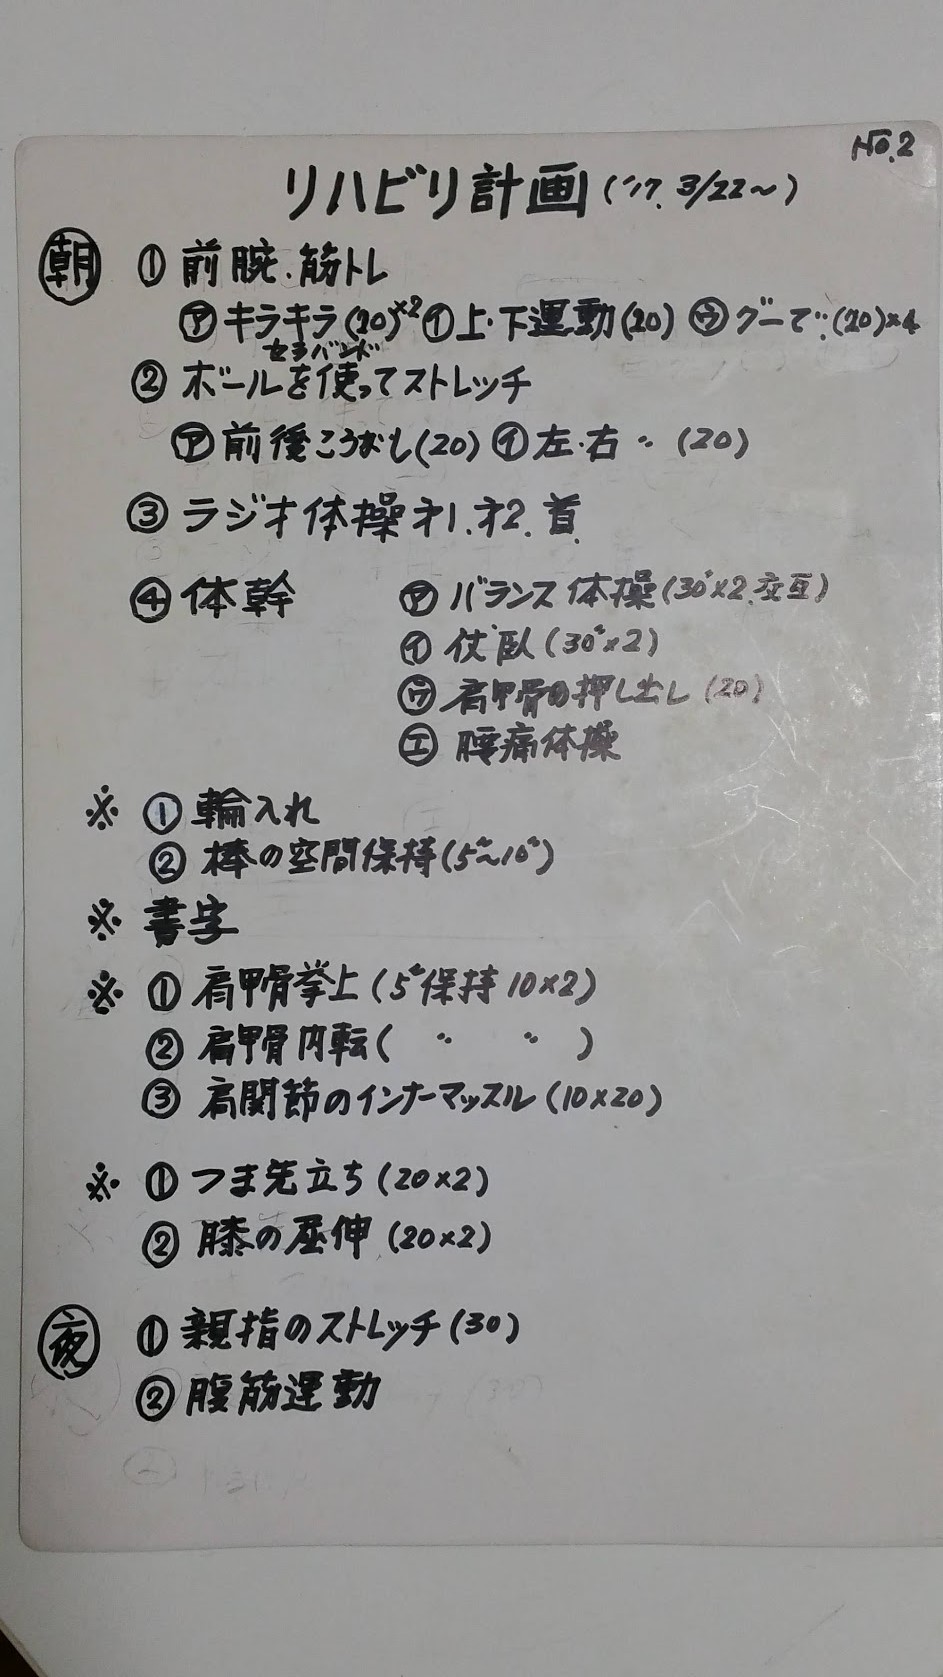 No.2
リハビリ計画('17. 3/22~)
朝 ① 前腕.筋トレ
㋐ キラキラ(20)×2 ㋑ 上・下運動(20) ㋒ グーで〃(20)×4
セラバンド
② ボールを使ってストレッチ
㋐ 前後こうおし(20) ㋑ 左・右 〃 (20)
③ ラジオ体操 才1.才2.首
④ 体幹 ㋐ バランス体操(30"×2.交互)
㋑ 伏臥(30"×2)
㋒ 肩甲骨の押し出し(20)
㋓ 腰痛体操
※ ① 輪入れ
② 棒の空間保持(5"~10")
※ 書字
※ ① 肩甲骨挙上(5"保持 10×2)
② 肩甲骨内転( 〃 〃 )
③ 肩関節のインナーマッスル(10×20)
※ ① つま先立ち(20×2)
② 膝の屈伸(20×2)
夜 ① 親指のストレッチ(30)
② 腹筋運動